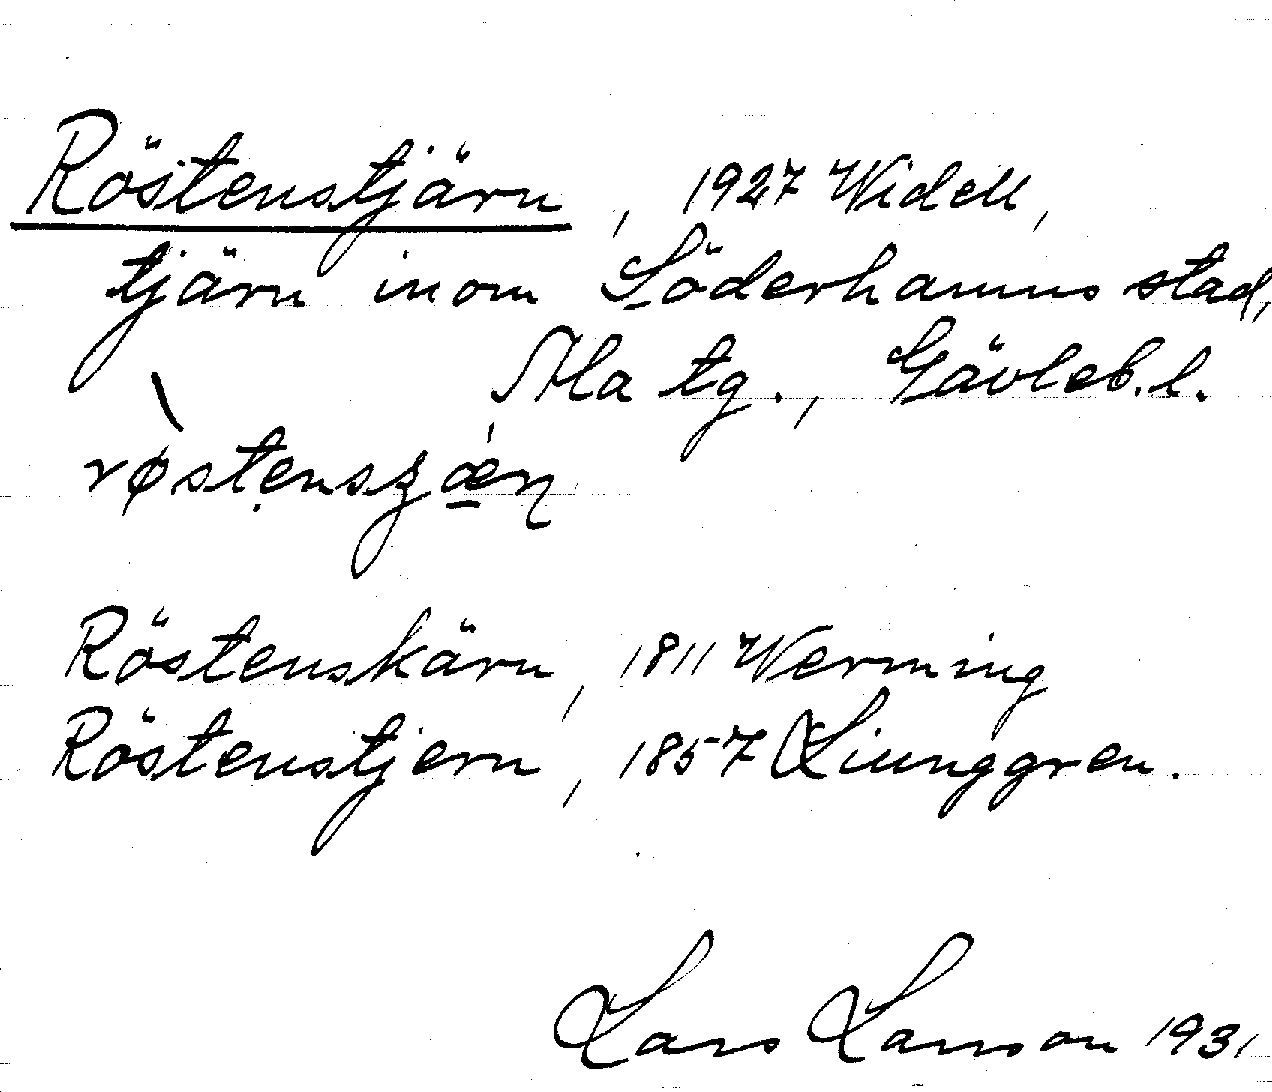 Röstenstjärn, 1927 Widell,
tjärn inom Söderhamns stad,
Ala tg., Gävleb. l.
Röstenskärn, 1811 Werming
Röstenstjern, 1857 Liunggren.
Lars Larsson 1931